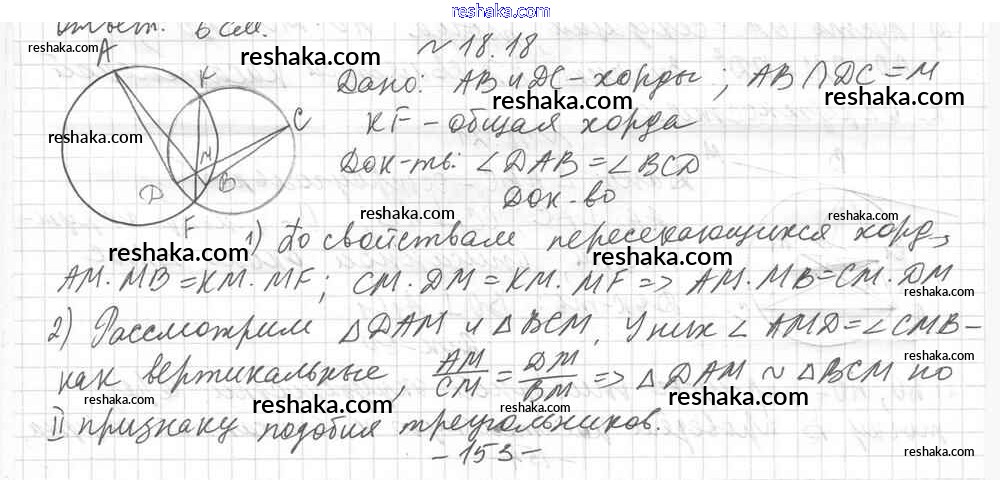 www.reshaka.com
Ответ: 6 см.
reshaka.com
№ 18.18
A
K
C
M
D
B
F
Дано: AB и DC - хорды; AB ∩ DC = M
KF - общая хорда
Док-ть: ∠DAB = ∠BCD
Док-во
1) По свойствам пересекающихся хорд,
AM · MB = KM · MF; CM · DM = KM · MF => AM · MB = CM · DM
2) Рассмотрим △DAM и △BCM, У них ∠AMD = ∠CMB -
как вертикальные, AM/CM = DM/BM => △DAM ~ △BCM по
II признаку подобия треугольников.
- 153 -
reshaka.com